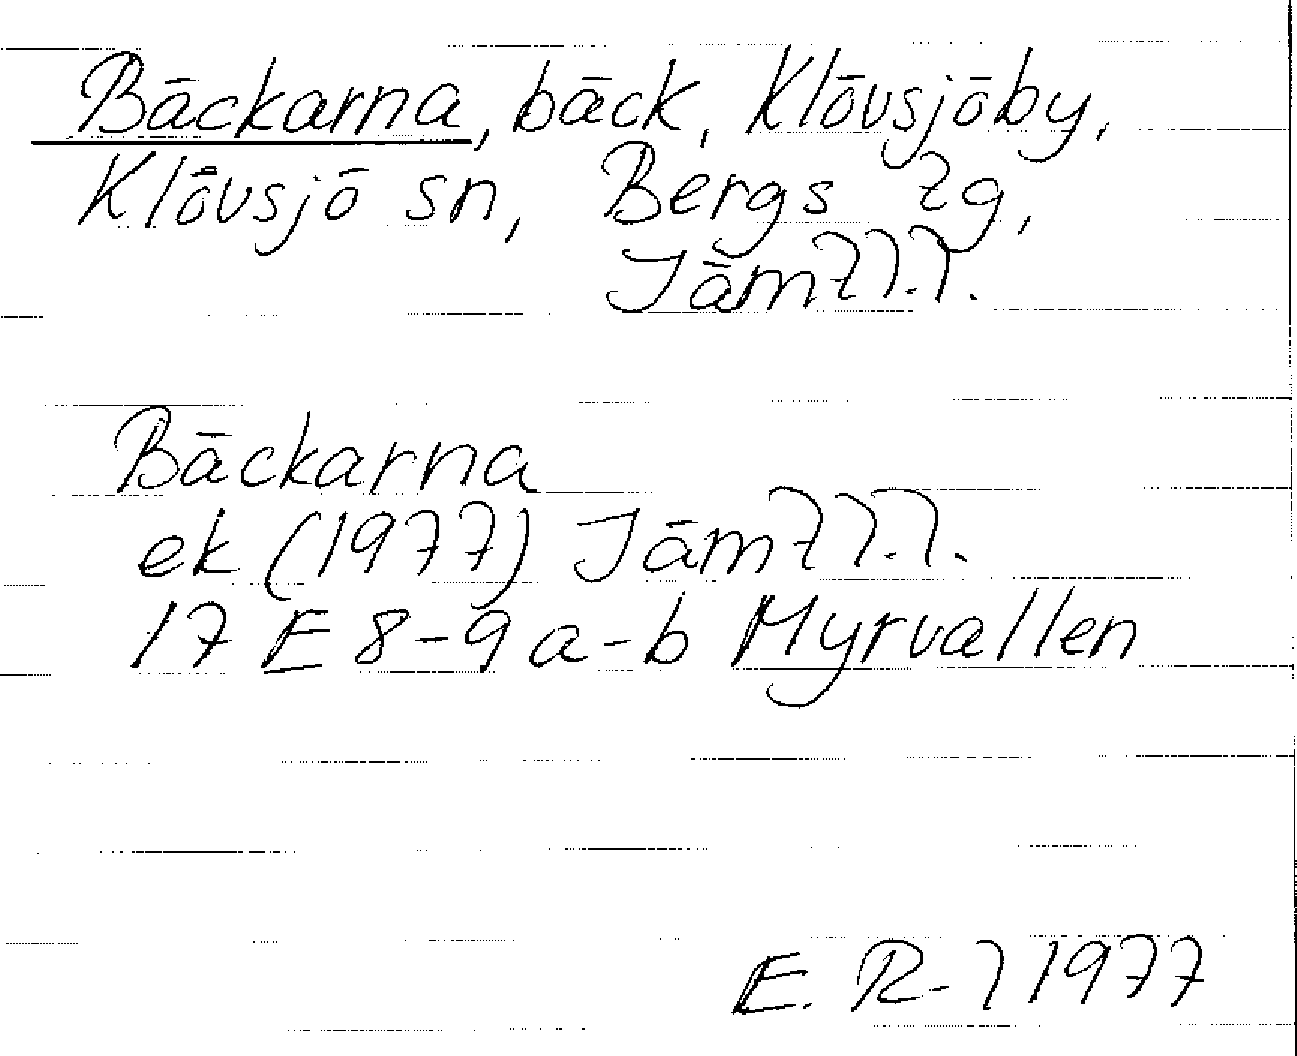 Bäckarna, bäck, Klövsjöby,
Klövsjö sn, Bergs tg,
Jämtl. l.
Bäckarna
ek (1977) Jämtl. l.
17 E 8-9 a-b Myrvallen
E. R-l 1977